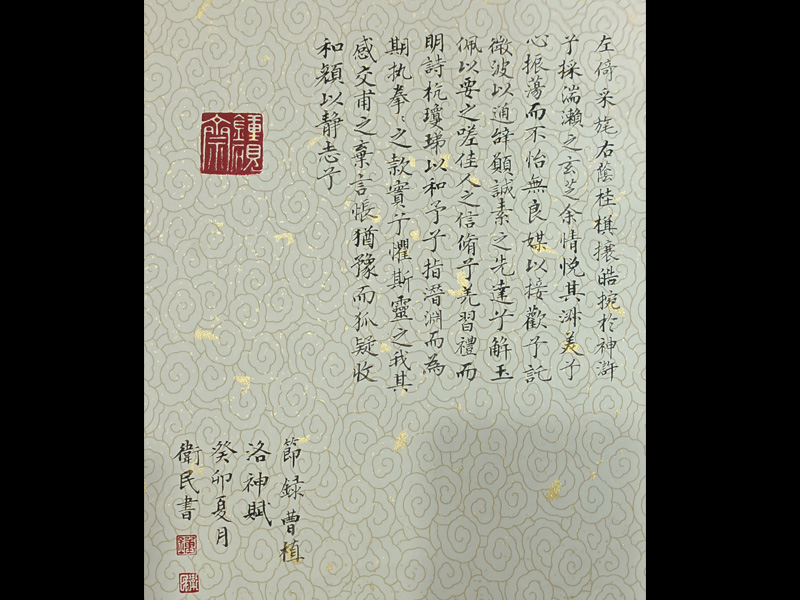 左倚采旄右蔭桂棋攘皓捥於神滸
兮採湍瀨之玄芝余情悅其淑美兮
心振蕩而不怡無良媒以接歡兮託
微波以通辞願誠素之先達兮解玉
佩以要之嗟佳人之信脩兮羌習禮而
明詩杭瓊珶以和予兮指潛淵而為
期执拳:之款實兮懼斯靈之我其
感交甫之棄言悵猶豫而狐疑收
和顏以静志兮
鍾硯齋
節録曹植
洛神賦
癸卯夏月
衛民書